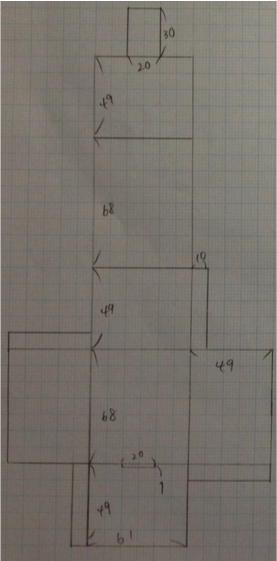 30
20
49
68
10
49
49
68
20
1
49
61